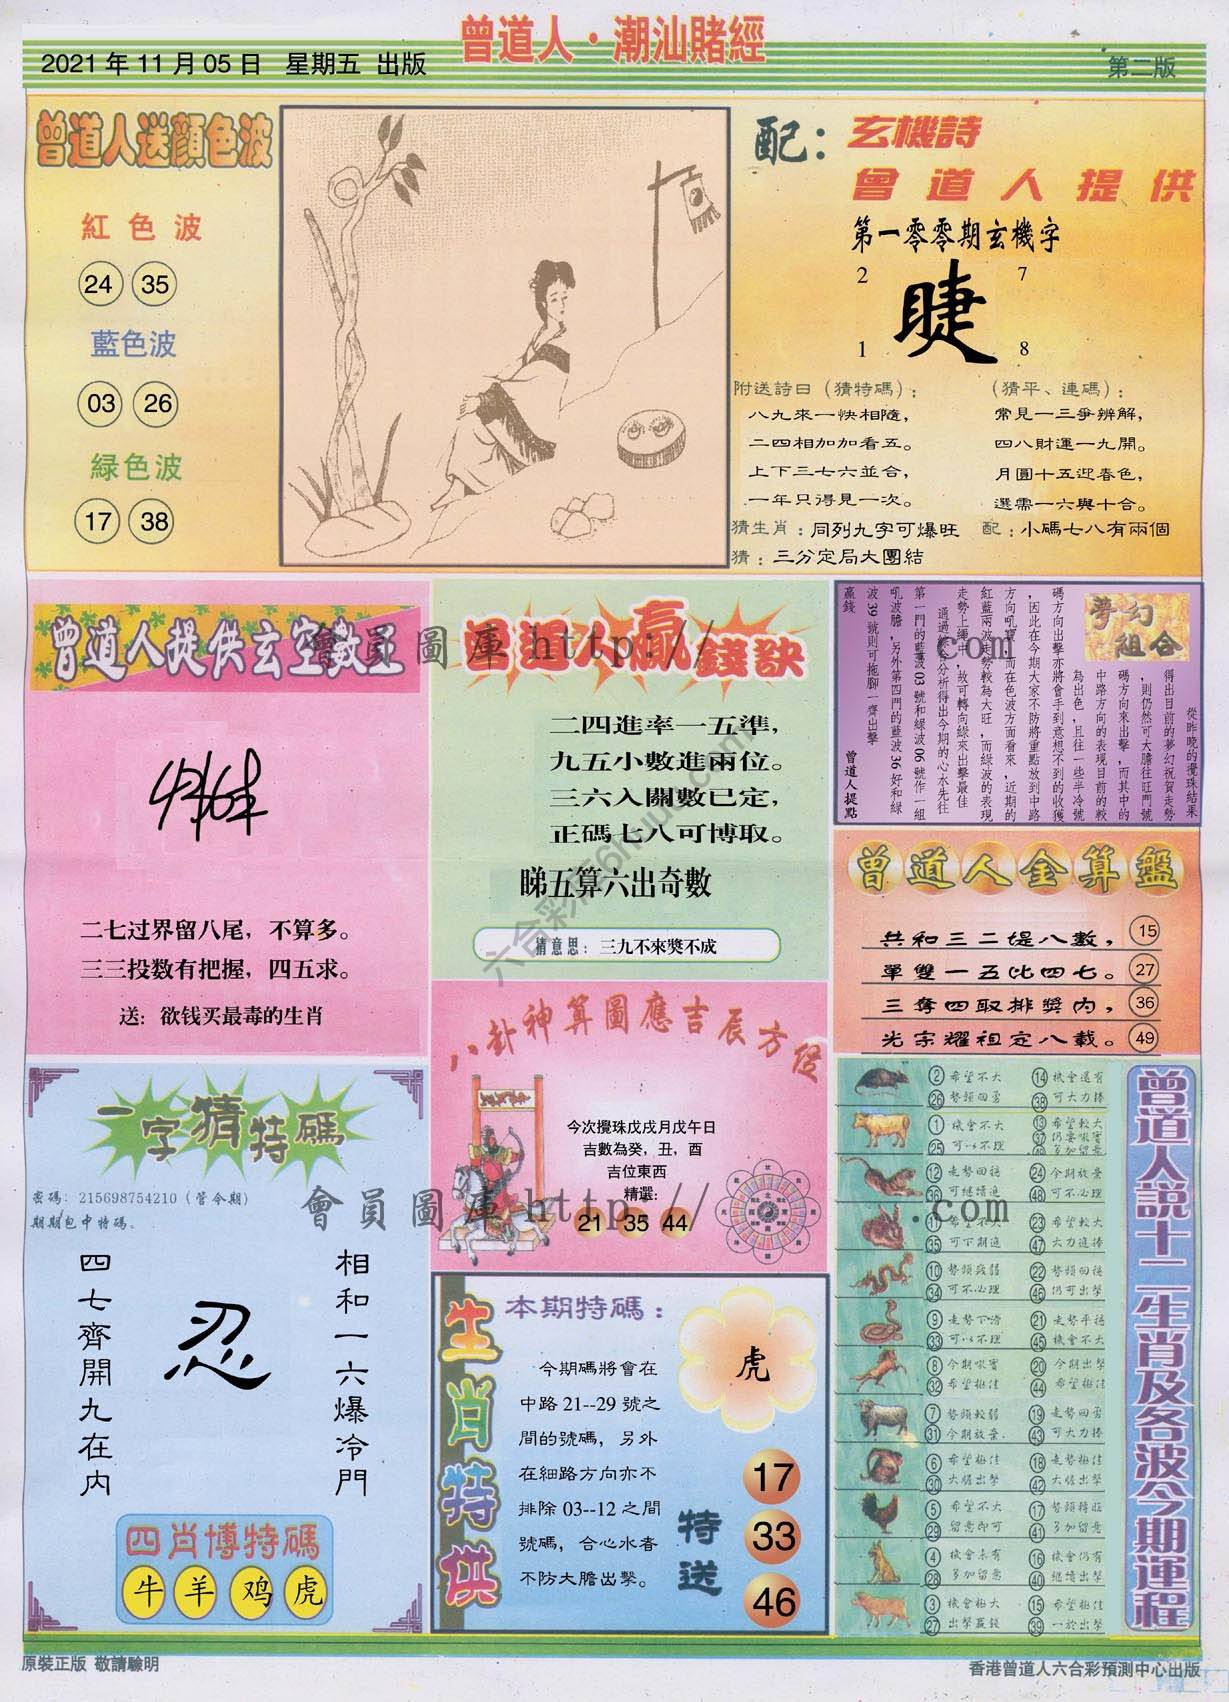 曾道人·潮汕賭經
2021年11月05日 星期五 出版
第二版
曾道人送顔色波
紅色波
24 35
藍色波
03 26
緑色波
17 38
配：玄機詩
曾道人提供
第一零零期玄機字
2 7
睫
1 8
附送詩曰（猜特碼）：
八九來一快相隨，
二四相加加看五。
上下三七六並合，
一年只得見一次。
（猜平、連碼）：
常見一三爭辨解，
四八財運一九開。
月圓十五迎春色，
選需一六與十合。
猜生肖：同列九字可爆旺
配：小碼七八有兩個
猜：三分定局大團結
曾道人提供玄空數王
二七过界留八尾，不算多。
三三投数有把握，四五求。
送：欲钱买最毒的生肖
曾道人贏錢訣
二四進率一五準，
九五小數進兩位。
三六入關數已定，
正碼七八可博取。
睇五算六出奇數
猜意思：三九不來獎不成
夢幻
組合
從昨晚的攪珠結果
得出目前的夢幻祝賀走勢
，則仍然可大膽往旺門號
碼方向來出擊，而其中的
中路方向的表現目前的較
為出色，且往一些半冷號
碼方向出擊亦將會手到意想不到的收獲
，因此在今期大家不防將重點放到中路
方向吼寶，而在色波方面看來，近期的
紅藍兩波走勢較為大旺，而綠波的表現
走勢上繩中，故可轉向綠來出擊最佳
通過綜合分析得出今期的心水先往
第一門的藍波03號和綠波06號作一組
吼波膽，另外第四門的藍波36好和綠
波39號則可拖腳一齊出擊
贏錢
曾道人提點
曾道人金算盤
共和三二堤八數，15
單雙一五比四七。27
三奪四取排獎內，36
光宗耀祖定八載。49
八卦神算圖應吉辰方位
今次攪珠戊戌月戊午日
吉數為癸，丑，酉
吉位東西
精選：
21 35 44
一字猜特碼
密碼：215698754210（管令期）
期期包中特碼。
相和一六爆冷門
忍
四七齊開九在内
四肖博特碼
牛 羊 鸡 虎
生肖特供
本期特碼：
今期碼將會在
中路21--29號之
間的號碼，另外
在細路方向亦不
排除03--12之間
號碼，合心水者
不防大膽出擊。
虎
特送
17
33
46
曾道人說十二生肖及各波今期運程
2 希望不大 14 機會還有
26 勢頭回勇 38 可大力捧
1 機會不大 13 希望較大
25 可以不理 37 仍要吼實
12 走勢回穩 24 今期放棄
36 可繼續追 48 可不必理
11 希望不大 23 希望較大
35 可下期追 47 大力追捧
10 勢頭減弱 22 勢頭回穩
34 可不必理 46 仍可出擊
9 走勢下滑 21 走勢平穩
33 可以不理 45 機會不大
8 今期吼實 20 今期出擊
32 希望極佳 44 希望極佳
7 勢頭較弱 19 走勢回勇
31 今期放棄 43 可大力捧
6 希望極佳 18 走勢極佳
30 大膽出擊 42 大膽出擊
5 希望不大 17 勢頭轉旺
29 留意即可 41 多加留意
4 機會未有 16 機會仍有
28 多加留意 40 繼續出擊
3 機會極大 15 希望極佳
27 出擊贏錢 39 一於出擊
會員圖庫 http:// .com
會員圖庫 http:// .com
原裝正版 敬請驗明
香港曾道人六合彩預測中心出版